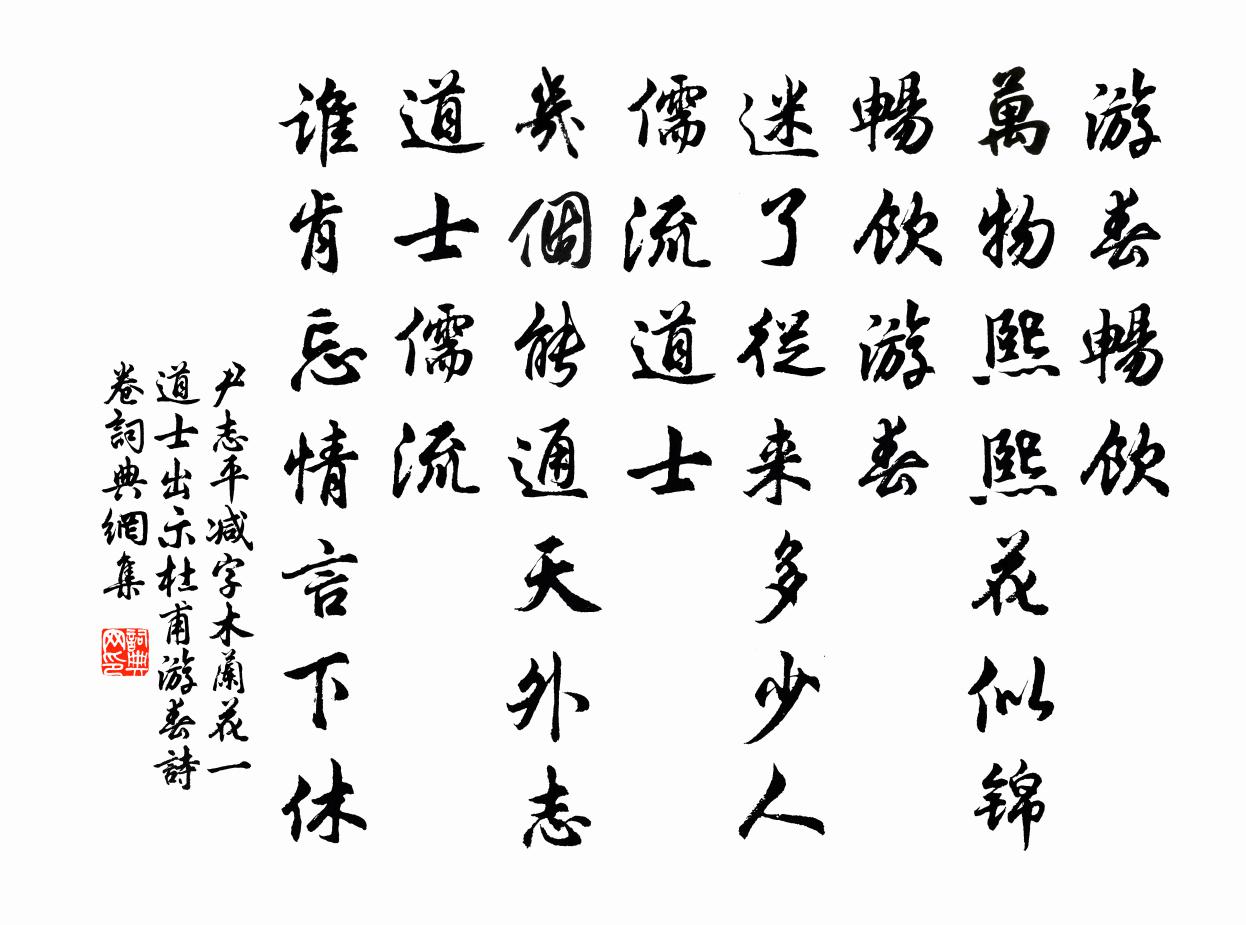 游春暢飲
萬物熙熙花似锦
暢飲游春
迷了從来多少人
儒流道士
幾個能通天外志
道士儒流
谁肯忘情言下休
尹志平减字木蘭花一
道士出示杜甫游春詩
卷詞典網集
詞典网印